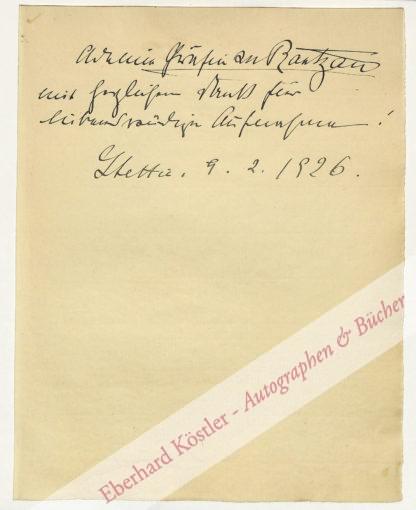 Gräfin zu Rantzau
mit herzlichem Dank für
liebenswürdige Aufnahme!
9. 2. 1926.
Eberhard Köstler - Autographen & Bücher